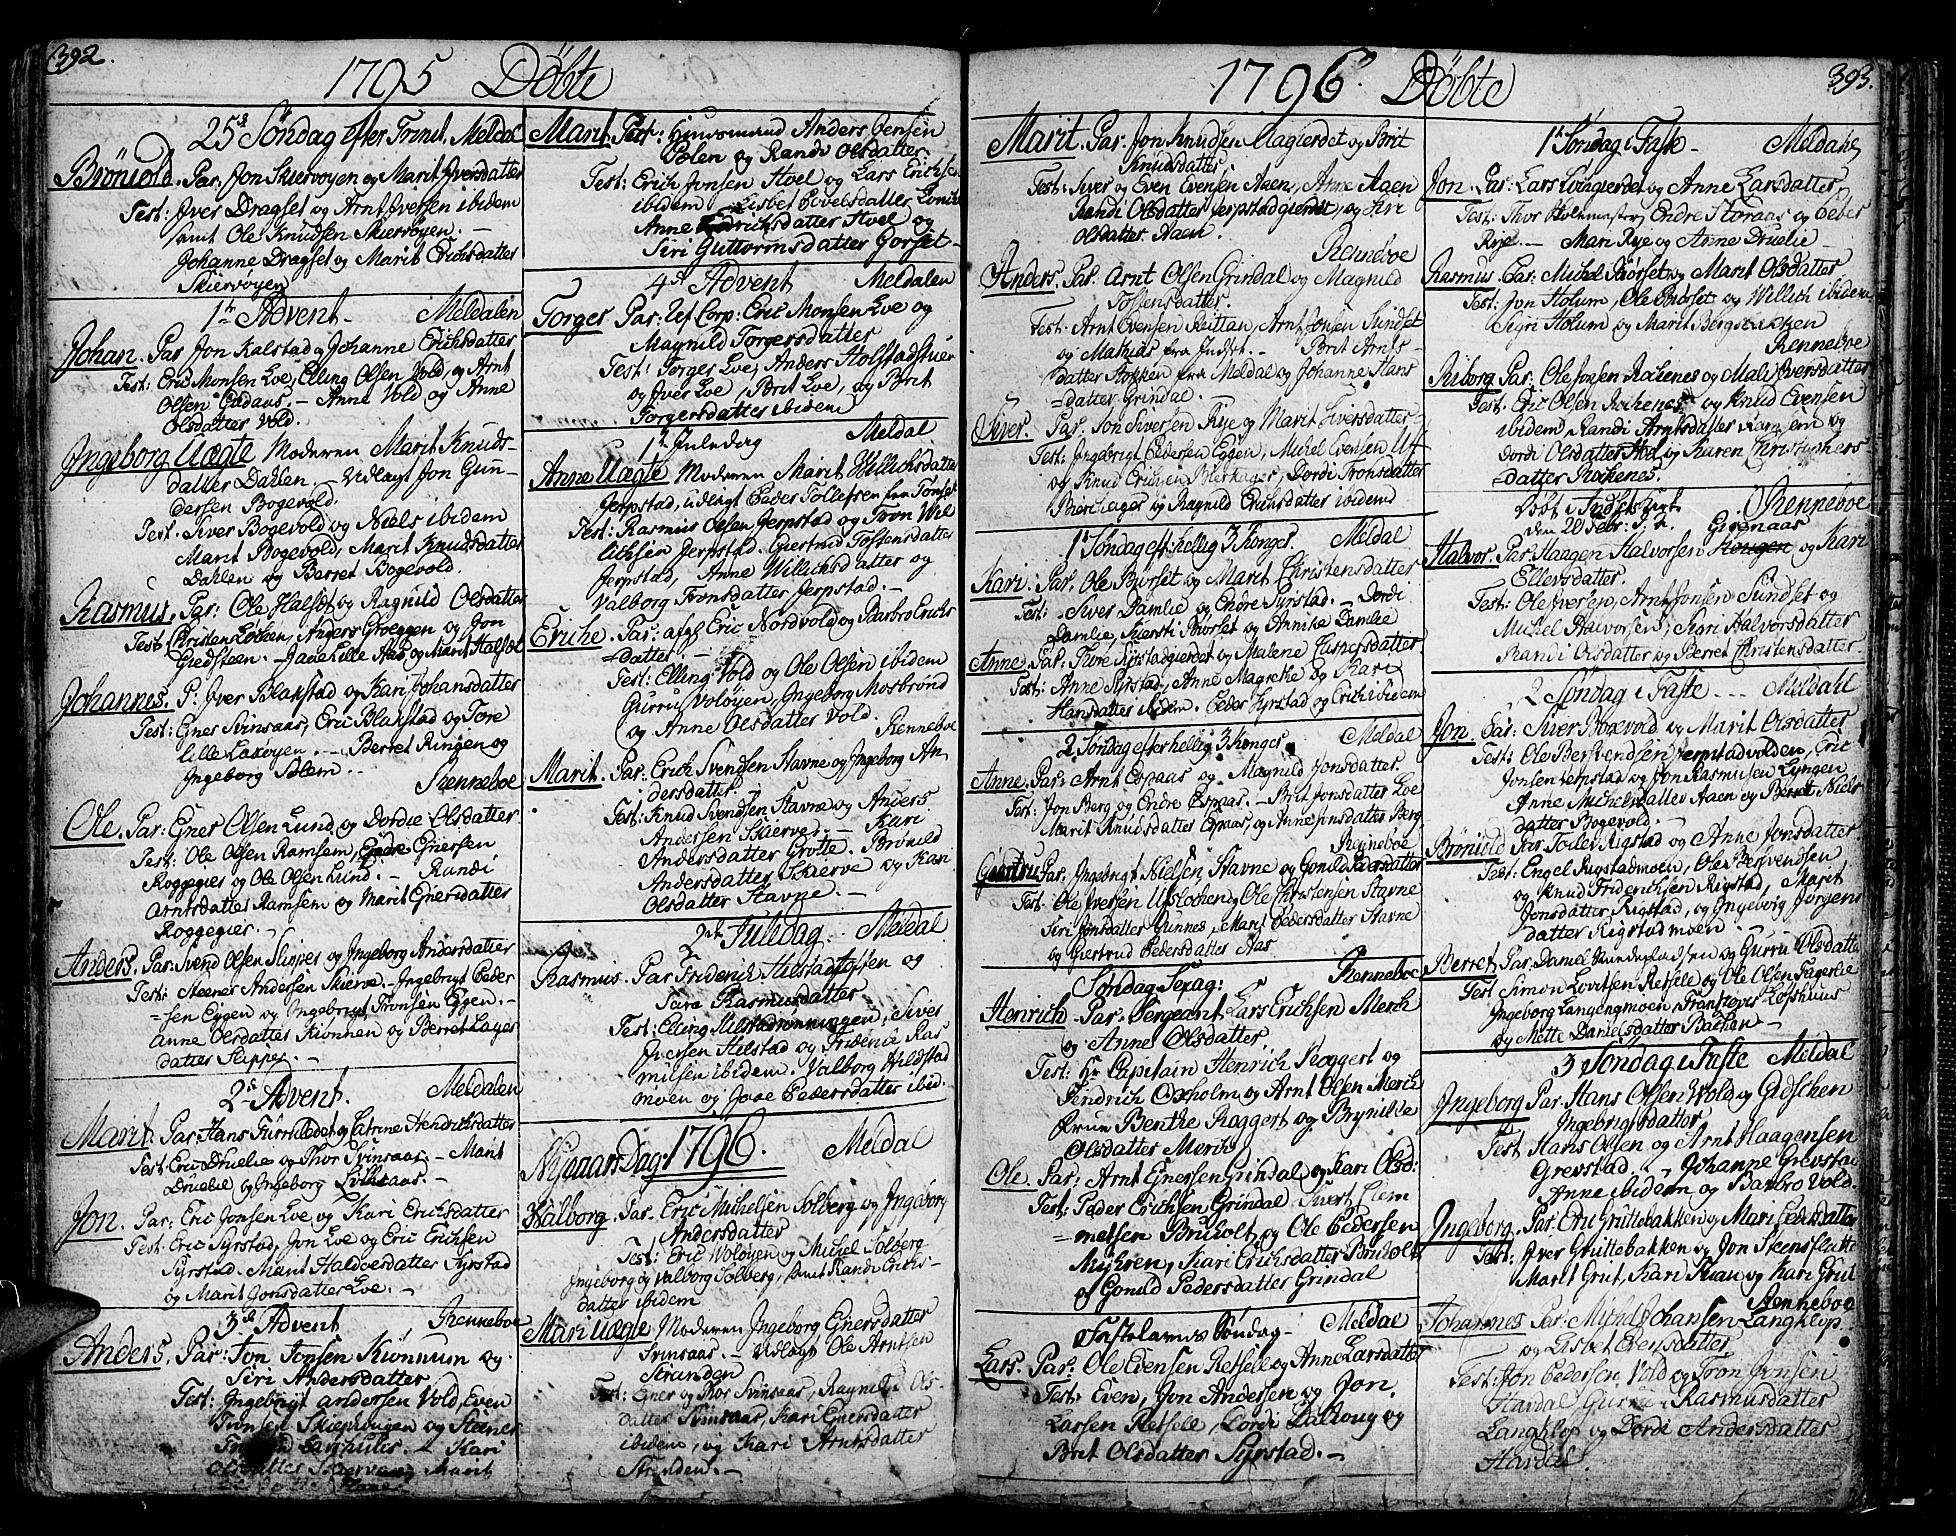 392.
1795 Döbte
25d Söndag efter Trinit. Meldal
Brönild. Par: Jon Skiervöyen og Marit Iversdatter
Test: Iver Dragset og Arnt Iversen ibidem
samt Ole Knudsen Skiervöyen. –
Johanne Dragset og Marit Erichsdatter
Skiervöyen
1te Advent – Meldalen
Johan. Par Jon Kalstad og Johanne Erichsdatter
Test: Eric Monsen Loe, Elling Olsen Vold, og Arnt
Olsen – Anne Vold og Anne
Olsdatter Vold.
Ingeborg Uægte Moderen Marit Knuds-
datter Dahlen. Udlagt Jon Gun-
dersen Bogevold.
Test: Siver Bogevold og Niels ibidem
Marit Bogevold, Marit Knudsdatter
Dahlen og Berret Bogevold.
Rasmus. Par: Ole Halset og Ragnild Olsdatter
Test: Christen Löcken, Anders Groeggen og Jon
Giedsteen. – Jaae Lille Aas og Marit Halset
Johannes. P: Iver Blakstad og Kari Johansdatter
Test: Egner Svinsaas, Eric Blakstad og Tore
lille Laxöyen. – Berret Ringen og
Ingeborg Solem. –
Renneboe
Ole. Par: Egner Olsen Lund og Dordie Olsdatter
Test: Ole Olsen Ramsem, Endre Egnersen
Roggegier og Ole Olsen Lund. – Randi
Arntsdatter Ramsem og Marit Egnersdatter
Roggegier. –
Anders. Par: Svend Olsen Slipper og Ingeborg Andersdatter
Test: Steener Andersen Skierve. – Ingebrigt Peder
=sen Eggen og Ingebrigt Tronsen Eggen. –
Anne Olsdatter Kiönnen og Berret Lars
datter Slipper. –
2d Advent. Meldalen
Marit. Par: Hans Furruledet og Catrine Hendrichsdatter
Test: Eric Druelie og Thor Svinsaas. – Marit
Druelie og Ingeborg –
Jon. Par: Eric Jonsen Loe og Kari Erichsdatter
Test: Eric Syrstad, Jon Loe og Eric Erichsen
Syrstad. Marit Haldoersdatter Syrstad
og Marit Jonsdatter Loe. –
3d Advent Renneboe
Anders. Par: Jon Jonsen Kiönnum og
Siri Andersdatter
Test: Ingebrigt Andersen Vold, Even
Tronsen og Steener
Kari
Olsdatter Marit
Marit. Par: Huusmand Anders Jensen
Polen og Randi Olsdatter.
Test: Erich Jonsen Hoel og Lars Erichsen
ibidem Lisbet
Anne Hoel og
Siri Guttormsdatter Gorset –
4de Advent Meldalen
Torger Par: Uf Corp: Eric Monsen Loe og
Magnild Torgersdatter
Test: Torger Loe, Anders Holstadstuen
og Iver Loe, Brit Loe, og Brit
Torgersdatter ibidem
1te Juledag Meldal
Anne Uægte Moderen Marit Willichsdatter
Jerpstad, udlagt Peder Tollefsen fra Tönset
Test: Rasmus Olsen Jerpstad og Tron Wil
lichsen Jerpstad. Giertrud Tostensdatter
Jerpstad, Anne Willichsdatter og
Valborg Tronsdatter Jerpstad. –
Eriche Par: afg: Eric Nordvold og Barbro Erichs
=datter. –
Test: Elling Vold og Ole Olsen ibidem
Gurru Volöyen, Ingeborg Mosbrönd
og Anne Olsdatter Vold. Renneboe
Marit. Par: Erich Svendsen Stavne og Ingeborg An-
dersdatter
Test: Knud Svendsen Stavne og Anders
Andersen Skierve. – Kari
Andersdatter Grötte. – Brönild
Andersdatter Skierve og Kari
Olsdatter Stavne. –
2de Juledag. Meldal
Rasmus. Par Friderich Hilstad og
Sara Rasmusdatter
Test: Elling, Siver
Iversen Hilstad og Friderich Ras
musen ibidem. Valborg Hilstad
moen og Jaae Pedersdatter ibid.
Nyaars Dag. 1796. Meldal
Walborg. Par. Eric Michelsen Solberg og Ingeborg
Andersdatter
Test: Eric Volöyen og Michel Solberg
Ingeborg og Valborg Solberg, samt Randi Erichs-
datter ibidem
Mari Uægte Moderen Ingeborg Egnersdatter
Svinsaas. – Udlagt Ole Arntsen
Stranden
Test: Egner og Thor Svinsaas, Ragnild Ols-
datter Svinsaas, Kari Egnersdatter
ibidem, og Kari Arntsdatter
Stranden. –
1796. Döbte 393.
Marit. Par. Jon Knudsen Magierdet og Brit
Knudsdatter
Test: Siver og Even Evensen Aaen, Anne Aaen
Randi Olsdatter Jerpstadgierdet, og Siri
Olsdatter Aaen.
Renneboe
Anders. Par. Arnt Olsen Grindal og Magnild
Tostensdatter.
Test: Arnt Evensen Reittan, Arnt Jonsen Sundset
og Mathias fra Indset. – Brit Arnts-
datter Stokken fra Meldal og Johanne Hans
=datter Grindal.
Siver. Par. Jon Siversen Rye og Marit Siversdatter.
Test: Ingebrigt Pedersen Eggen, Michel Evensen Uf
og Knud Erichsen Bierkager, Dordi Tronsdatter
Bierkager og Ragnild Erichsdatter ibidem
1te Söndag eft: hellig 3 Konger Meldal
Kari. Par. Ole Börset og Marit Christensdatter
Test: Siver Damlie og Endre Syrstad. – Dordi
Damlie, Kiersti Börset og Annike Damlie
Anne Par. Ture Syrstadgierdet og Malene Jespersdatter
Test: Anne Syrstad, Anne Magrethe og Kari
Hansdatter ibidem. Peder Syrstad og Erich ibidem
2 Söndag efter hellig 3 Konger Meldal
Anne. Par. Arnt Espaas og Magnild Jonsdatter.
Test: Jon Berg og Endre Espaas. – Brit Jonsdatter Loe
Marit Knudsdatter Espaas, og Anne Jonsdatter Berg
Renneboe
Giertru Par. Ingebrigt Nielsen Stavne og Gonild Pedersdatter
Test: Ole Iversen Ufsloehen og Ole Christensen Stavne
Siri Jonsdatter Gunnes, Mari Pedersdatter Stavne
og Giertrud Pedersdatter Aas
Söndag Sexag: Renneboe
Henrich. Par. Sergeant Lars Erichsen Merch
og Anne Olsdatter.
Test: Hr Capitain Henrich Roggert og
Hindrich Oxholm og Arnt Olsen Merch
Frue Benthe Raggert og Brynilde
Olsdatter Merch.
Ole Par. Arnt Egnersen Grindal og Kari Olsd:
Test: Peder Erichsen Grindal Sivert Clem
=metsen Bruholt og Ole Pedersen
Myhren, Kari Erichsdatter Bruholt
og Gonild Pedersdatter Grindal
Fastelavns Söndag – Meldal
Lars. Par. Ole Evensen Retsele og Anne Larsdatter
Test: Even, Jon Andersen og Jon
Larsen Retsele, Dordi Dalhoug og
Brit Olsdatter Syrstad. –
1te Söndag i Faste – Meldahl
Jon. Par: Lars Lvingierdet og Anne Larsdatter
Test: Thor Holemaster, Endre Storaas og Peder
Rye. – Mari Rye og Anne Druelie –
Rasmus Par: Michel Börset og Marit Olsdatter
Test: Jon Holum, Ole Börset og Willich ibidem
Sigri Holum og Marit Bergsbakken
Renneboe
Riborg Par. Ole Jonsen Rockenes og Mali Iversdatter
Test. Eric Olsen Rockenes og Knud Evensen
ibidem Randi Arntsdatter Ramsem og
Dordi Olsdatter Hoel og Karen Christophers
datter Rockenes.
Döbt i Indset Kirk Renneboe
den 20 Febr. s. a.
Gisenaas
Halvor. Par. Haagen Halvorsen og Kari
Ellevsdatter.
Test: Ole Iversen, Arnt Jonsen Sundset og
Michel Halvorsen, Sigri Halvorsdatter
Randi Olsdatter og Berret Christensdatter
2 Söndag i Faste – Meldahl
Jon Par: Siver Bogevold og Marit Olsdatter
Test: Ole Bersvendsen Jerpstadvolden, Eric
Jonsen Jerpstad og Jon Rasmusen Lyngen
Anne Michelsdatter Aaen og Berret Niels
datter Bogevold. –
Brönild Par Tollev Rigstad og Anne Jonsdatter
Test: Engel Rigstadmoen, Ole Bersvendsen
og Knud Friderichsen Rigstad, Marit
Jonsdatter Rigstad, og Ingeborg Jörgens
datter Rigstadmoen.
Berret Par. Daniel og Gurru Olsdatter
Test Simon Lovitsen Retsele og Ole Olsen Fagerlie
Ingeborg Langengmoen, Löfshuus
og Mette Danielsdatter Backen –
3 Söndag i Faste Meldal
Ingeborg Par. Hans Olsen Wold og Gidschen
Ingebrigtsdatter
Test Hans Olsen og Arnt Haagensen
Grevstad. Johanne Grevstad
Anne ibidem og Barbro Vold.
Ingeborg. Par. Eric Gruttebakken og Mari Pedersdatter
Test: Iver Gruttebakken og Jon Steensflatte
Marit Grut, Kari og Kari Grut
Renneboe
Johannes Par: Michel Johansen Langklop
og Lisbet Evensdatter
Test: Jon Pedersen Vold og Tron Jonsen
Hardal Gurru Rasmusdatter
Langklop og Dordi Andersdatter
Hardal.